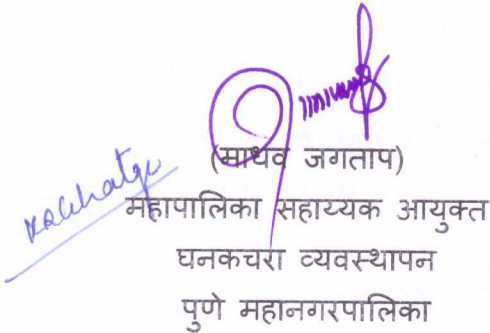 (माधव जगताप)
महापालिका सहाय्यक आयुक्त
घनकचरा व्यवस्थापन
पुणे महानगरपालिका